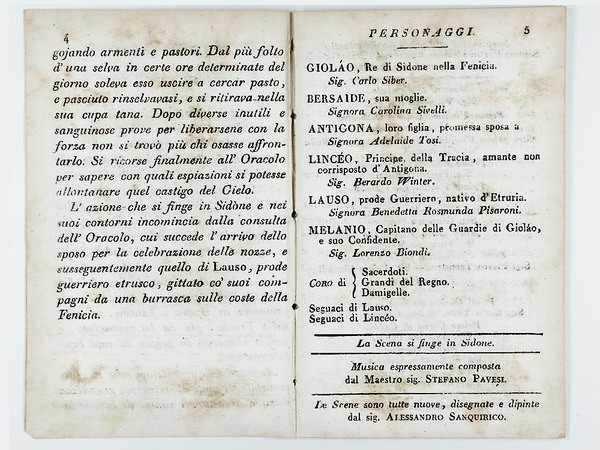 4
gojando armenti e pastori. Dal più folto
d'una selva in certe ore determinate del
giorno soleva esso uscire a cercar pasto,
e pasciuto rinselvavasi, e si ritirava nella
sua cupa tana. Dopo diverse inutili e
sanguinose prove per liberarsene con la
forza non si trovò più chi osasse affron-
tarlo. Si ricorse finalmente all' Oracolo
per sapere con quali espiazioni si potesse
allontanare quel castigo del Cielo.
L' azione che si finge in Sidòne e nei
suoi contorni incomincia dalla consulta
dell' Oracolo, cui succede l'arrivo dello
sposo per la celebrazione delle nozze, e
susseguentemente quello di Lauso, prode
guerriero etrusco, gittato co' suoi com-
pagni da una burrasca sulle coste della
Fenicia.
PERSONAGGI. 5
GIOLÁO, Re di Sidone nella Fenicia.
Sig. Carlo Siber.
BERSAIDE, sua moglie.
Signora Carolina Sivelli.
ANTIGONA, loro figlia, promessa sposa a
Signora Adelaide Tosi.
LINCÉO, Principe della Tracia, amante non
corrisposto d'Antigona.
Sig. Berardo Winter.
LAUSO, prode Guerriero, nativo d'Etruria.
Signora Benedetta Rosmunda Pisaroni.
MELANIO, Capitano delle Guardie di Gioláo,
e suo Confidente.
Sig. Lorenzo Biondi.
Coro di
Sacerdoti.
Grandi del Regno.
Damigelle.
Seguaci di Lauso.
Seguaci di Lincéo.
La Scena si finge in Sidone.
Musica espressamente composta
dal Maestro sig. STEFANO PAVESI.
Le Scene sono tutte nuove, disegnate e dipinte
dal sig. ALESSANDRO SANQUIRICO.